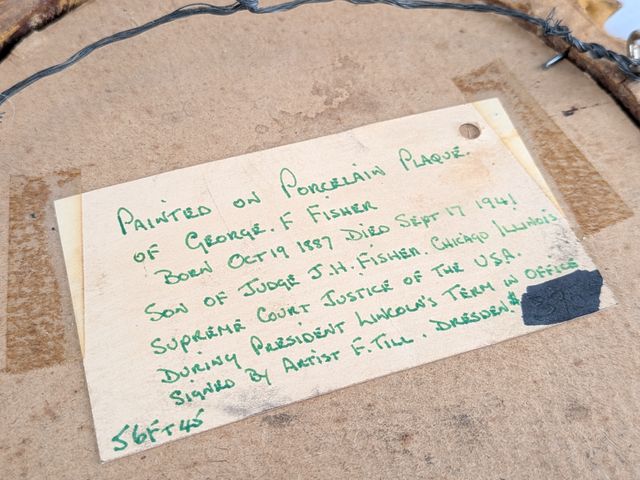 PAINTED ON PORCELAIN PLAQUE.
OF GEORGE. F FISHER
BORN OCT 19 1887 DIED SEPT 17 1941
SON OF JUDGE J.H. FISHER. CHICAGO ILLINOIS
SUPREME COURT JUSTICE OF THE USA.
DURING PRESIDENT LINCOLN'S TERM IN OFFICE
SIGNED BY ARTIST F. TILL. DRESDEN. $
56FT45